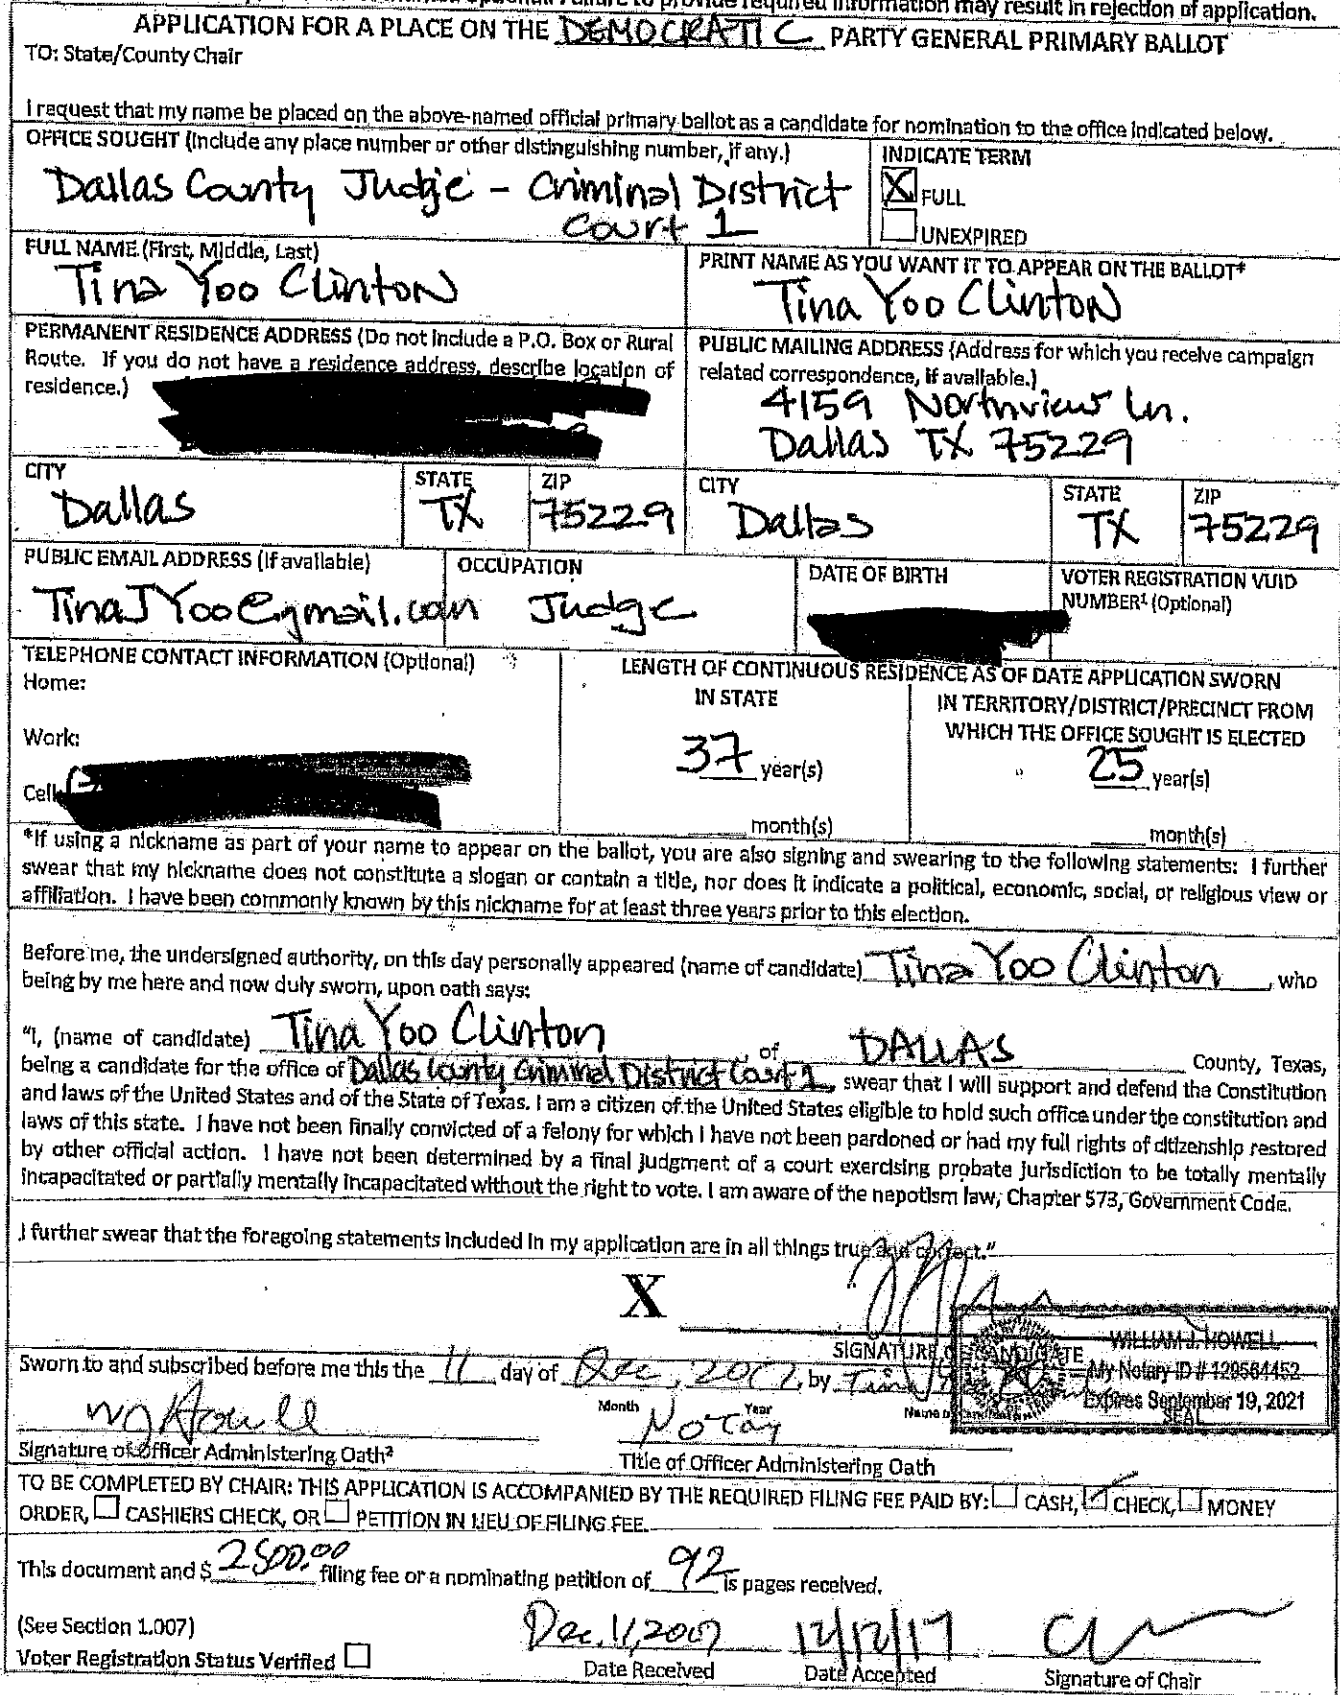 required information may result in rejection of application.
APPLICATION FOR A PLACE ON THE DEMOCRATIC PARTY GENERAL PRIMARY BALLOT
TO: State/County Chair
I request that my name be placed on the above-named official primary ballot as a candidate for nomination to the office indicated below.
OFFICE SOUGHT (Include any place number or other distinguishing number, if any.)
Dallas County Judge - Criminal District
Court 1
INDICATE TERM
X FULL
UNEXPIRED
FULL NAME (First, Middle, Last)
Tina Yoo Clinton
PRINT NAME AS YOU WANT IT TO APPEAR ON THE BALLOT*
Tina Yoo Clinton
PERMANENT RESIDENCE ADDRESS (Do not include a P.O. Box or Rural
Route. If you do not have a residence address, describe location of
residence.)
PUBLIC MAILING ADDRESS (Address for which you receive campaign
related correspondence, if available.)
4159 Northview Ln.
Dallas TX 75229
CITY
Dallas
STATE
TX
ZIP
75229
CITY
Dallas
STATE
TX
ZIP
75229
PUBLIC EMAIL ADDRESS (If available)
TinaJYoo@gmail.com
OCCUPATION
Judge
DATE OF BIRTH
VOTER REGISTRATION VUID
NUMBER¹ (Optional)
TELEPHONE CONTACT INFORMATION (Optional)
Home:
Work:
Cell:
LENGTH OF CONTINUOUS RESIDENCE AS OF DATE APPLICATION SWORN
IN STATE
37 year(s)
month(s)
IN TERRITORY/DISTRICT/PRECINCT FROM
WHICH THE OFFICE SOUGHT IS ELECTED
25 year(s)
month(s)
*If using a nickname as part of your name to appear on the ballot, you are also signing and swearing to the following statements: I further
swear that my nickname does not constitute a slogan or contain a title, nor does it indicate a political, economic, social, or religious view or
affiliation. I have been commonly known by this nickname for at least three years prior to this election.
Before me, the undersigned authority, on this day personally appeared (name of candidate) Tina Yoo Clinton, who
being by me here and now duly sworn, upon oath says:
"I, (name of candidate) Tina Yoo Clinton, of DALLAS County, Texas,
being a candidate for the office of Dallas County Criminal District Court 1, swear that I will support and defend the Constitution
and laws of the United States and of the State of Texas. I am a citizen of the United States eligible to hold such office under the constitution and
laws of this state. I have not been finally convicted of a felony for which I have not been pardoned or had my full rights of citizenship restored
by other official action. I have not been determined by a final judgment of a court exercising probate jurisdiction to be totally mentally
incapacitated or partially mentally incapacitated without the right to vote. I am aware of the nepotism law, Chapter 573, Government Code.
I further swear that the foregoing statements included in my application are in all things true and correct."
X
SIGNATURE OF CANDIDATE
WILLIAM J. HOWELL
My Notary ID # 129564452
Expires September 19, 2021
SEAL
Sworn to and subscribed before me this the 11 day of Dec, 2017, by Tina
Month Year Name of
WJ Howell
Notary
Signature of Officer Administering Oath²
Title of Officer Administering Oath
TO BE COMPLETED BY CHAIR: THIS APPLICATION IS ACCOMPANIED BY THE REQUIRED FILING FEE PAID BY: CASH, CHECK, MONEY
ORDER, CASHIERS CHECK, OR PETITION IN LIEU OF FILING FEE.
This document and $ 2500.00 filing fee or a nominating petition of 92 is pages received.
(See Section 1.007)
Voter Registration Status Verified
Dec. 11, 2017
Date Received
12/12/17
Date Accepted
Signature of Chair